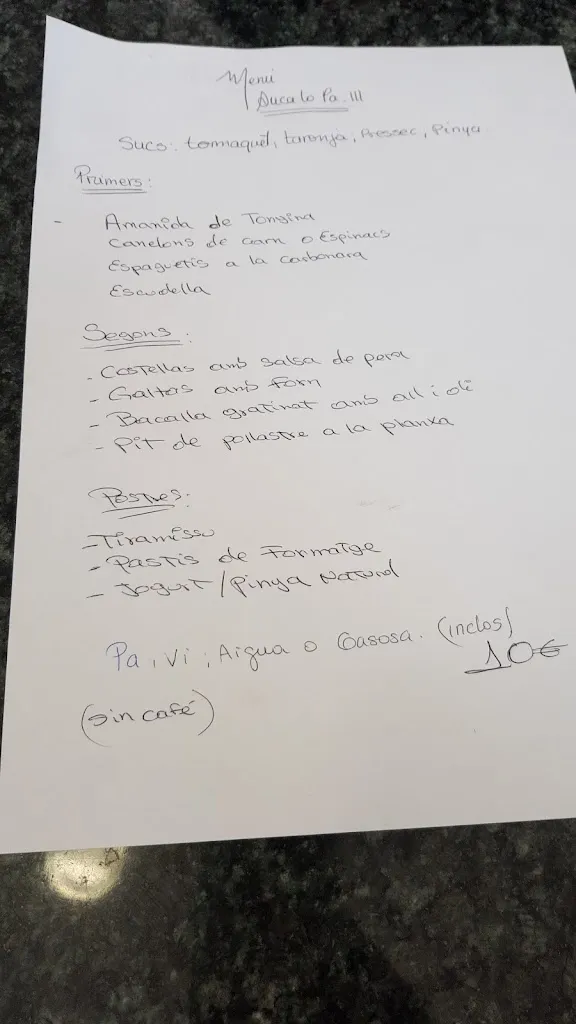 Menú
Sucalo Pa. III
Sucs: tommaquet, taronja, Pressec, Pinya
Primers:
- Amanida de Tonyina
Canelons de carn o Espinacs
Espaguetis a la carbonara
Escudella
Segons:
- Costellas amb salsa de pera
- Galtas amb forn
- Bacalla gratinat amb all i oli
- Pit de pollastre a la planxa
Postres:
- Tiramissu
- Pastis de Formatge
- Jogurt / Pinya Natural
Pa, Vi, Aigua o Gasosa. (inclos)
10€
(sin café)